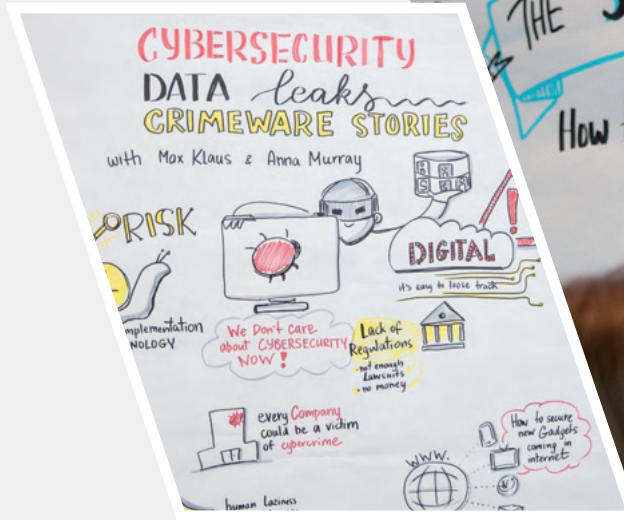 CYBERSECURITY
DATA leaks
CRIMEWARE STORIES
with Max Klaus & Anna Murray
RISK
DIGITAL
it's easy to loose track
implementation
NOLOGY
We Don't care
about CYBERSECURITY
NOW!
Lack of
Regulations
- not enough
Lawsuits
- no money
every Company
could be a victim
of cybercrime
How to secure
new Gadgets
coming in
internet
WWW.
human laziness
THE
How